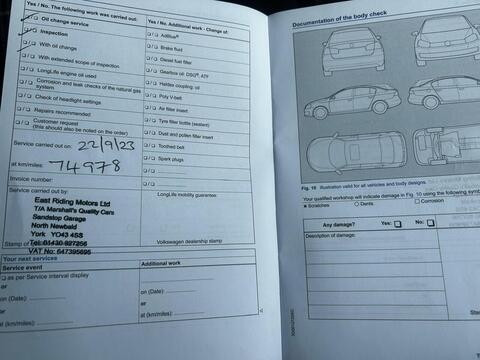 Yes / No. The following work was carried out:
Oil change service
Inspection
With oil change
With extended scope of inspection
LongLife engine oil used
Corrosion and leak checks of the natural gas
system
Check of headlight settings
Repairs recommended
Customer request
(this should also be noted on the order)
Service carried out on: 22/9/23
at km/miles: 74978
Invoice number:
Service carried out by:
East Riding Motors Ltd
T/A Marshall's Quality Cars
Sandstop Garage
North Newbald
York YO43 4SS
Stamp of
Tel: 01430 827256
VAT No: 647395695
Your next services
Service event
as per Service interval display
or
on (Date):
or
at (km/miles):
Yes / No. Additional work - Change of:
AdBlue®
Brake fluid
Diesel fuel filter
Gearbox oil: DSG®, ATF
Haldex coupling: oil
Poly V-belt
Air filter insert
Tyre filler bottle (sealant)
Dust and pollen filter insert
Toothed belt
Spark plugs
LongLife mobility guarantee:
Volkswagen dealership stamp
Additional work
on (Date):
or
at (km/miles):
Documentation of the body check
Fig. 10 Illustration valid for all vehicles and body designs.
Your qualified workshop will indicate damage in Fig. 10 using the following symb
Scratches Dents Corrosion
Any damage? Yes: No:
Description of damage:
Stam